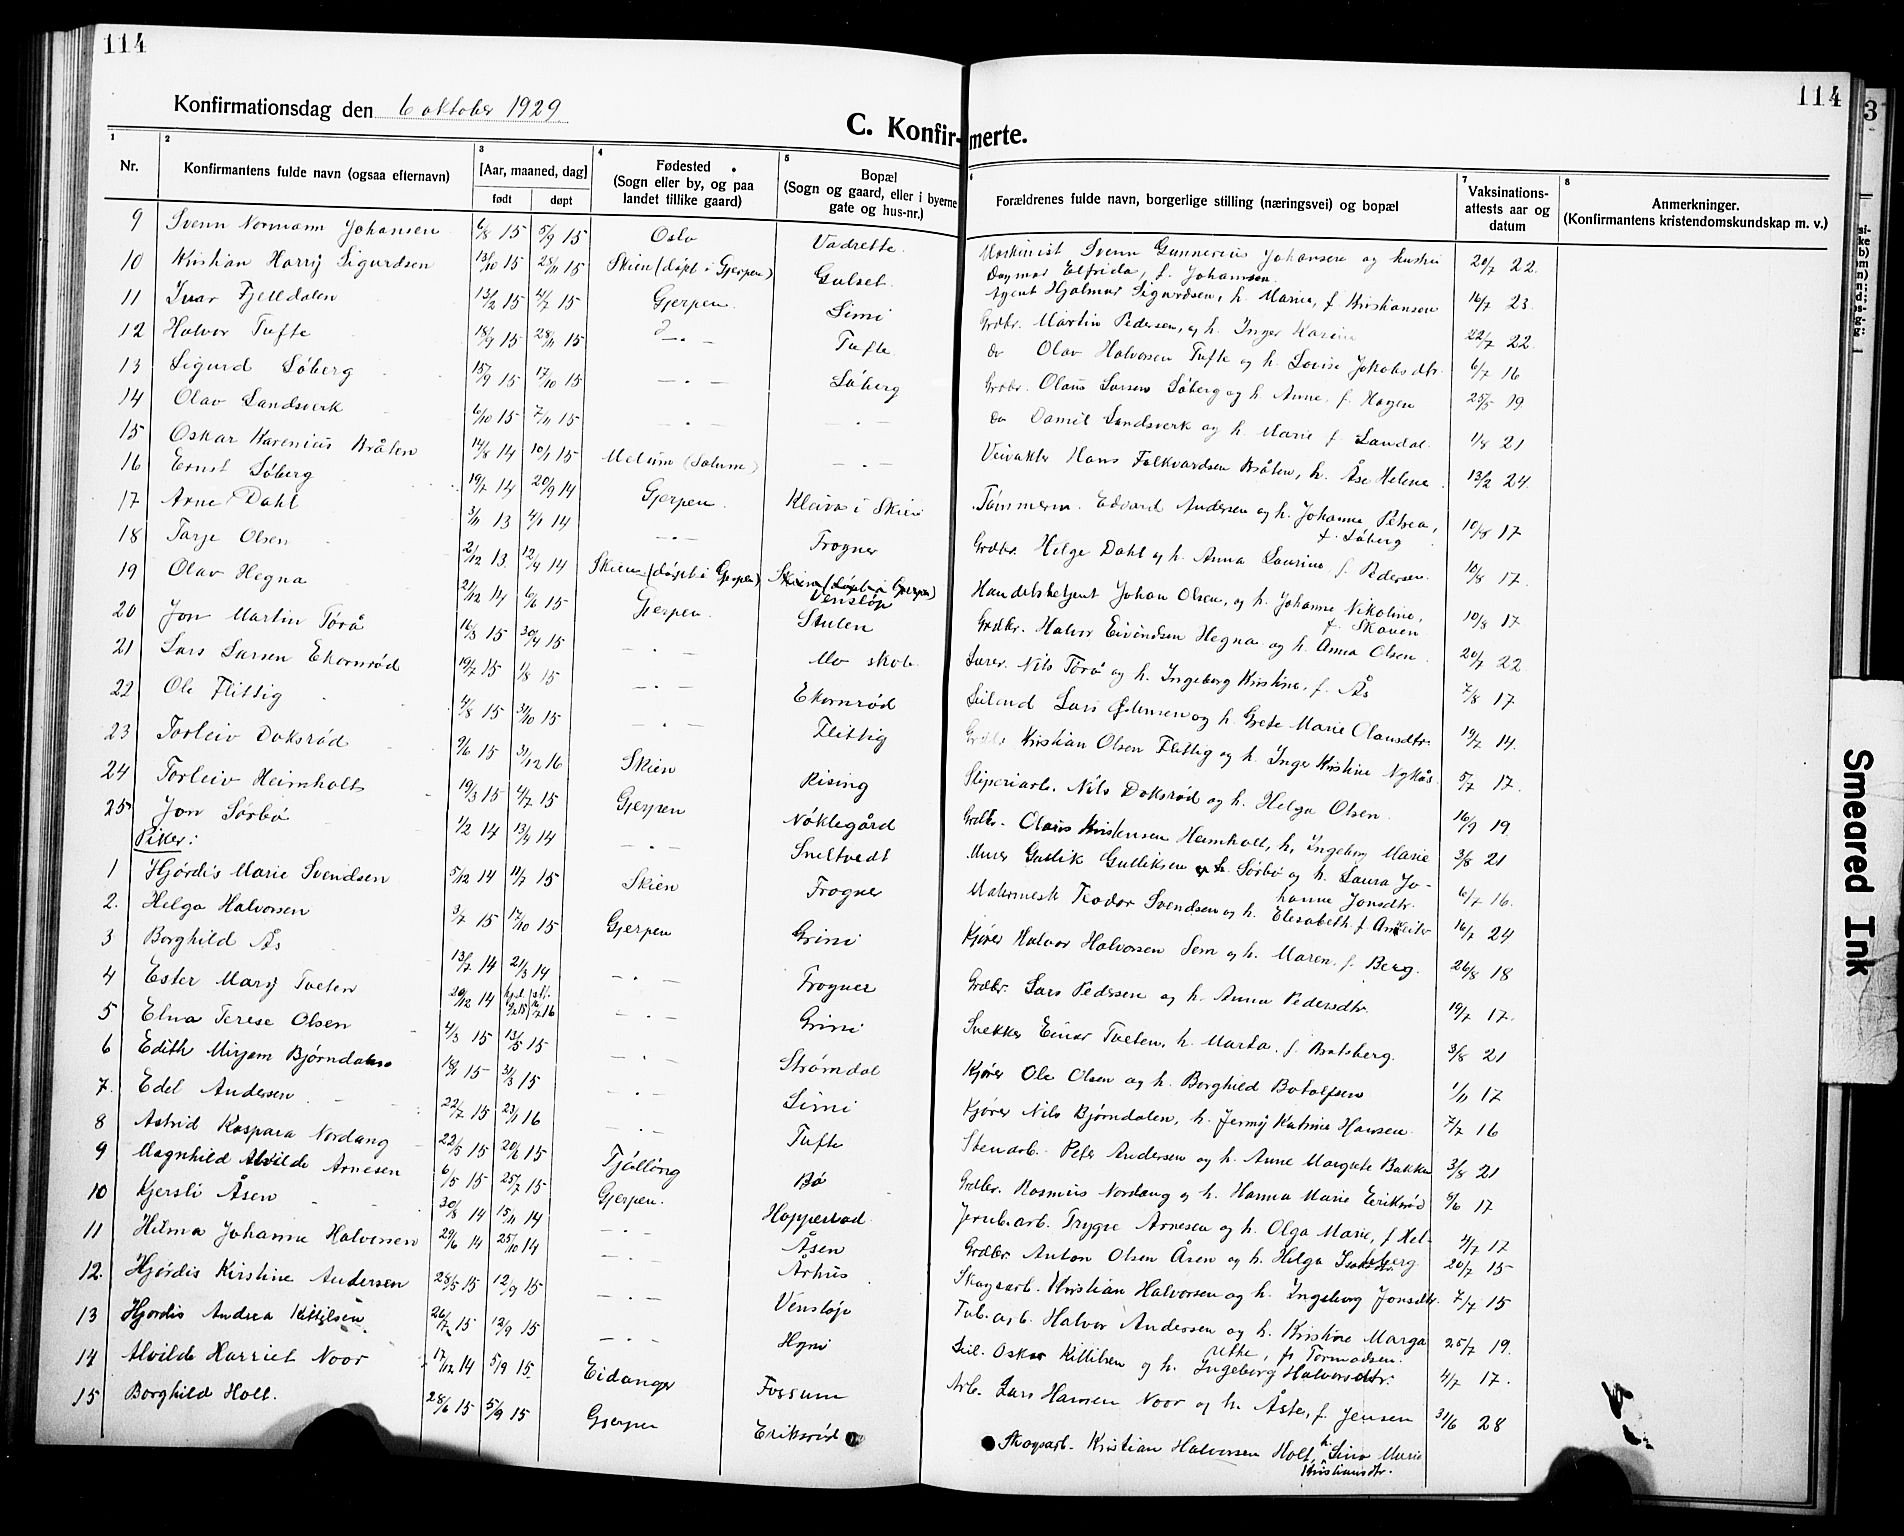 114
114
Konfirmationsdag den 6 oktober 1929
C. Konfirmerte.
1 2 3 4 5 6 7 8
Nr. Konfirmantens fulde navn (ogsaa efternavn) [Aar, maaned, dag] født døpt Fødested (Sogn eller by, og paa landet tillike gaard) Bopæl (Sogn og gaard, eller i byerne gate og hus-nr.) Forældrenes fulde navn, borgerlige stilling (næringsvei) og bopæl Vaksinations-attests aar og datum Anmerkninger. (Konfirmantens kristendomskundskap m. v.)
9 Svenn Normann Johansen 6/8 15 5/9 15 Oslo Vadrette Maskinist Svenn Gunnerius Johansen og hustru Dagmar Elfrida, f. Johannsen. 20/7 22.
10 Kristian Harry Sigurdsen 13/10 15 28/11 15 Skien (døpt i Gjerpen) Gulset Agent Hjalmar Sigurdsen, h. Marie, f. Kristiansen 16/7 23
11 Ivar Fjelldalen 13/2 15 4/7 15 Gjerpen. Limi Grdbr. Martin Pedersen, og h. Inger Karine 22/7 22.
12 Halvor Tufte 18/9 15 28/11 15 —.— Tufte do Olav Halvorsen Tufte og h. Lovise Jakobsdtr. 6/7 16
13 Sigurd Løberg 15/9 15 17/10 15 —.— Løberg Grdbr. Olaus Larsen Løberg og h. Anne, f. Hagen 25/5 19
14 Olav Landsverk 6/10 15 7/11 15 —.— —.— do Daniel Landsverk og h. Marie f. Landal. 1/8 21
15 Oskar Karenius Bråten 14/8 14 10/1 15 Melum (Solum) —.— Veivakter Hans Folkvardsen Bråten, h. Åse Helene 13/2 24.
16 Ernst Løberg 19/7 14 20/9 14 Gjerpen. Kleiva i Skien Tømmerm. Edvard Andersen og h. Johanne Petrea, f. Løberg 10/8 17
17 Arne Dahl 3/11 13 4/1 14 —.— Frogner Grdbr. Helge Dahl og h. Anna Laurine, f. Pedersen. 10/8 17.
18 Tarje Olsen 2/12 13. 12/4 14 Skien (døpt i Gjerpen) Venstøp Handelsbetjent Johan Olsen, og h. Johanne Nikoline, f. Skauen 10/8 17
19 Olav Hegna 21/12 14 6/6 15 Gjerpen. Stulen Grdbr. Halvor Eivindsen Hegna og h. Anna Olsen 20/7 22
20 Jon Martin Torå 16/3 15 30/4 15 —.— Mo skole Lærer. Nils Torå og h. Ingeborg Kristine, f. Ås 7/8 17
21 Lars Larsen Ekornrød 19/7 15 1/8 15 —.— Ekornrød Leilend Lars Johnsen og h. Grete Marie Olausdtr. 19/7 14.
22 Ole Flittig 4/8 15 31/10 15 —.— Flittig Grdbr. Kristian Olsen Flittig og h. Inger Kristine Nykås 5/7 17.
23 Torleiv Doksrød 9/6 15 31/12 16 Skien Rising Sliperiarb. Nils Doksrød og h. Helga Olsen 16/9 19
24 Torleiv Heimholt 19/3 15 4/7 15 Gjerpen Nøklegård Grdbr. Olaus Kristensen Hemholt, h. Ingeborg Marie 3/8 21
25 Jon Sørbø 1/2 14 13/4 14 —.— Sneltvedt Murer Gullik Gulliksen Sørbø og h. Laura Johanne Jonsdtr. 6/7 16.
Piker:
1 Hjørdis Marie Svendsen 5/12 14 11/7 15 Skien Frogner Malermestr Teodor Svendsen og h. Elisabeth f. 16/7 24
2. Helga Halvorsen 3/7 15 17/10 15 Gjerpen Grini Kjører Halvor Halvorsen Sem og h. Maren f. Berg. 26/8 18
3 Borghild Ås 13/7 14 21/3 14 —.— Frogner Grdbr. Lars Pedersen og h. Anna Pedersdtr. 19/7 17.
4 Ester Mary Tveten 20/12 14 —.— Grini Snekker Einar Tveten, h. Marta f. Bratsberg. 3/8 21
5 Elna Terese Olsen 4/3 15 13/5 15 —.— Strømdal Kjører Ole Olsen og h. Borghild Botolfsen 1/11 17
6 Edith Mirjam Bjørndalen 18/1 15 31/3 15 —.— Limi Kjører Nils Bjørndalen, h. Jenny Katrine Hansen 7/7 16
7. Edel Andersen 22/7 15 23/1 16 —.— Tufte Stenarb. Peter Andersen og h. Anne Margrete Bakka 3/8 21
8 Astrid Kaspara Nordang 22/5 15 20/6 15 Tjølling Bø Grdbr. Rasmus Nordang og h. Hanna Marie Eriksrød 6/6 17
9 Magnhild Alvilde Arnesen 6/5 15 25/7 15 Gjerpen. Hoppestad Jernb.arb. Trygve Arnesen og h. Olga Marie, f. Helleberg 4/7 17
10 Kjersti Åsen 30/8 14 15/11 14 —.— Åsen Grdbr. Anton Olsen Åsen og h. Helga Isaksdtr. 20/7 15
11 Hilma Johanne Halvorsen 29/6 14 25/10 14 —.— Århus Skogsarb. Kristian Halvorsen og h. Ingeborg Jonsdtr. 7/7 15
12. Hjørdis Kirstine Andersen 28/5 15 12/9 15 —.— Venstøp Fab.arb. Halvor Andersen og h. Kristine Margarethe, f. Tormodsen. 25/7 19.
13 Hjørdis Andrea Kittilsen 26/7 15 12/9 15 —.— Hyni Leil. Oskar Kittilsen og h. Ingeborg Halvorsdtr. 4/7 17.
14 Alvilde Harriet Noor 17/12 14 5/9 15. Eidanger Fossum Arb. Lars Hansen Noor og h. Åste, f. Jensen 31/6 28
15 Borghild Holt. 28/6 15 5/9 15 Gjerpen Eriksrød Skogsarb. Kristian Halvorsen Holt, h. Lina Marie Kristiansdtr.
Smeared Ink